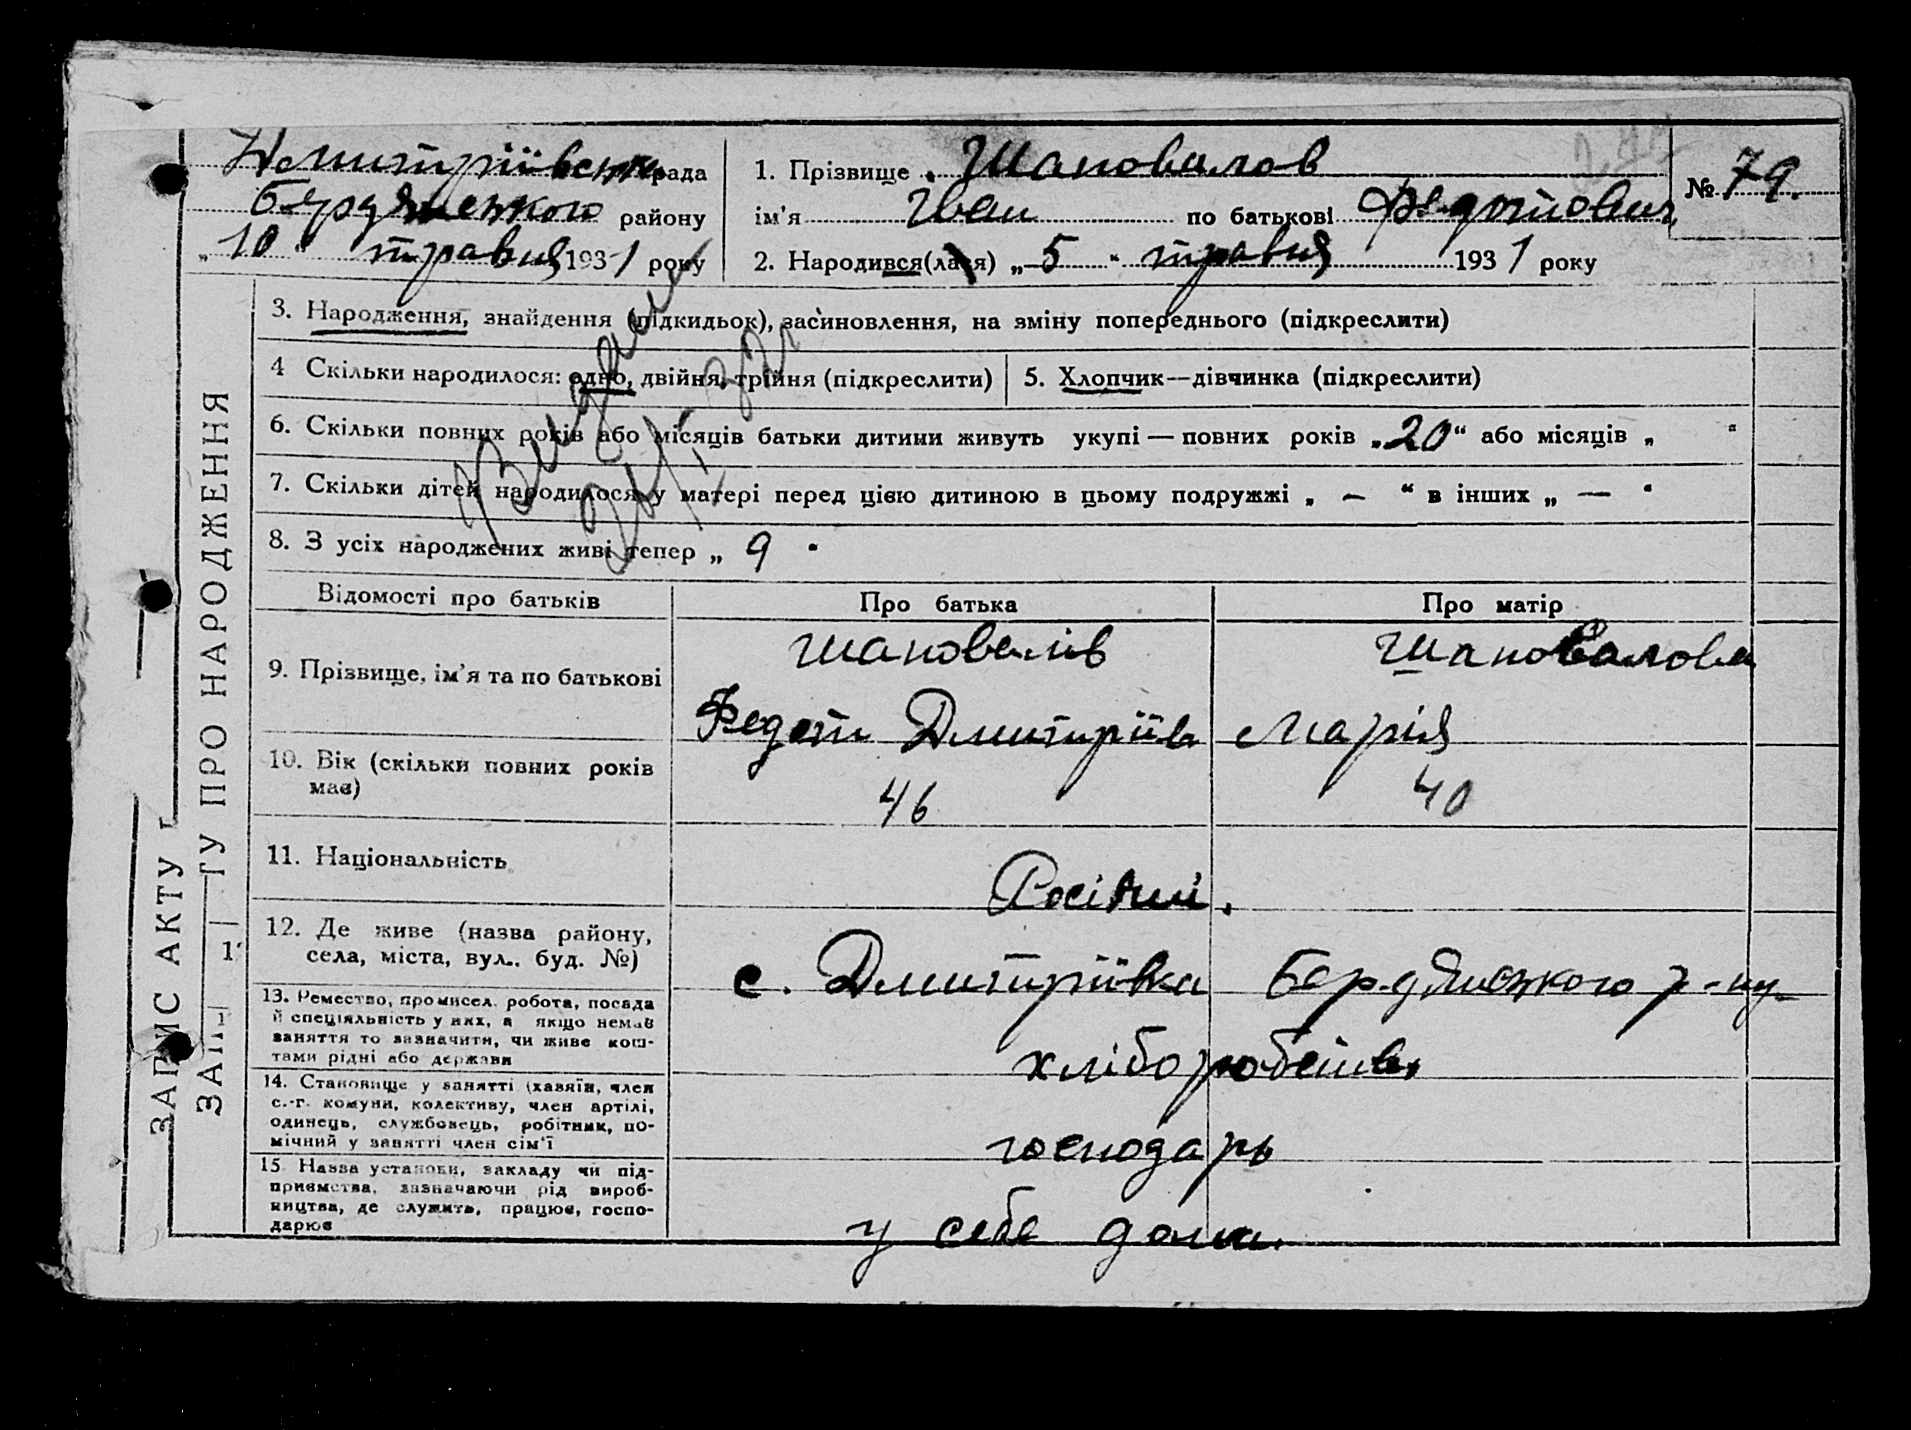 Дмитріївська рада
Бердянського району
„10“ травня 1931 року
1. Прізвище Шаповалов
ім'я Іван по батькові Федотович
2. Народився(лася) „5“ травня 1931 року
№ 79.
3. Народження, знайдення (підкидьок), засиновлення, на зміну попереднього (підкреслити)
4 Скільки народилося: одно, двійня, трійня (підкреслити)
5. Хлопчик—дівчинка (підкреслити)
6. Скільки повних років або місяців батьки дитини живуть укупі — повних років „20“ або місяців „ “
7. Скільки дітей народилося у матері перед цією дитиною в цьому подружжі „ – “ в інших „ — “
8. З усіх народжених живі тепер „ 9 “
Відомості про батьків
Про батька
Про матір
9. Прізвище, ім'я та по батькові
Шаповалів
Федот Дмитріїв
Шаповалова
Марія
10. Вік (скільки повних років
має)
46
40
11. Національність
Росіяни.
12. Де живе (назва району,
села, міста, вул.. буд. №)
с. Дмитріївка Бердянського р-ну
13. Ремество, промисел. робота, посада
й спеціяльність у них, а якщо немає
заняття то зазначити, чи живе кош-
тами рідні або держави
хлібороби
14. Становище у занятті (хазяїн, член
с.-г. комуни, колективу, член артілі,
одинець, службовець, робітник, по-
мічний у занятті член сім'ї
господарь
15. Назва установи, закладу чи під-
приємства, зазначаючи рід вироб-
ництва, де служить, працює, госпо-
дарює
у себе дома.
ЗАПИС АКТУ
ЗАП ТУ ПРО НАРОДЖЕННЯ